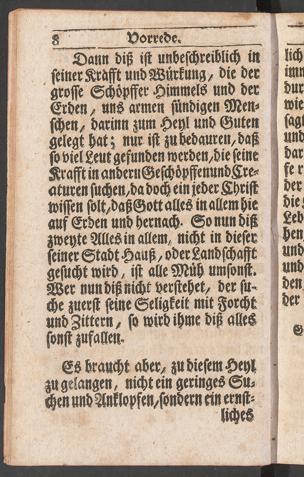 8 Vorrede.
Dann diß ist unbeschreiblich in
seiner Krafft und Würkung, die der
grosse Schöpffer Himmels und der
Erden, uns armen sündigen Men-
schen, darinn zum Heyl und Guten
gelegt hat; nur ist zu bedauren, daß
so viel Leut gefunden werden, die seine
Krafft in andern Geschöpffen und Cre-
aturen suchen, da doch ein jeder Christ
wissen solt, daß Gott alles in allem hie
auf Erden und hernach. So nun diß
zweyte Alles in allem, nicht in dieser
seiner Stadt, Hauß, oder Landschafft
gesucht wird, ist alle Müh umsonst.
Wer nun diß nicht verstehet, der su-
che zuerst seine Seligkeit mit Forcht
und Zittern, so wird ihme diß alles
sonst zufallen.
Es braucht aber, zu diesem Heyl
zu gelangen, nicht ein geringes Su-
chen und Anklopfen, sondern ein ernst-
liches